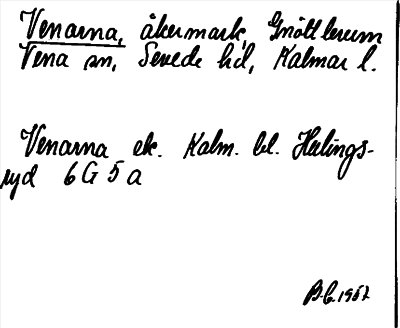 Venarna, åkermark, Gnöttlerum
Vena sn, Sevede hd, Kalmar l.
Venarna ek. Kalm. bl. Hulings-
ryd 6 G 5 a
B.G. 1957